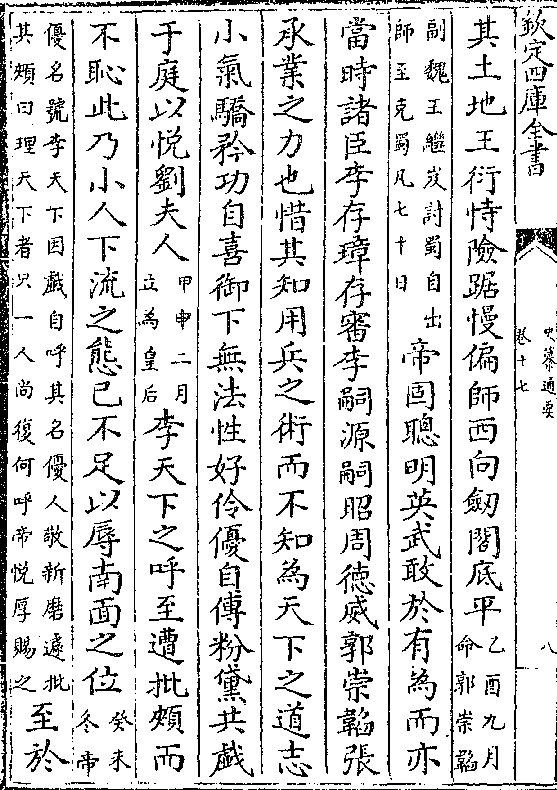 欽定四庫全書
史纂通要
卷十七
八
其土地王衍恃險踞慢偏師西向劒閣底平乙酉九月命郭崇韜
副魏王繼岌討蜀自出師至克蜀凡七十日帝固聰明英武敢於有為而亦
當時諸臣李存璋存審李嗣源嗣昭周德威郭崇韜張
承業之力也惜其知用兵之術而不知為天下之道志
小氣驕矜功自喜御下無法性好伶優自傅粉黛共戲
于庭以悅劉夫人甲申二月立為皇后李天下之呼至遭批頰而
不恥此乃小人下流之態已不足以辱南面之位癸未冬帝
優名號李天下因戲自呼其名優人敬新磨遽批其頰曰理天下者只一人尚復何呼帝悅厚賜之至於